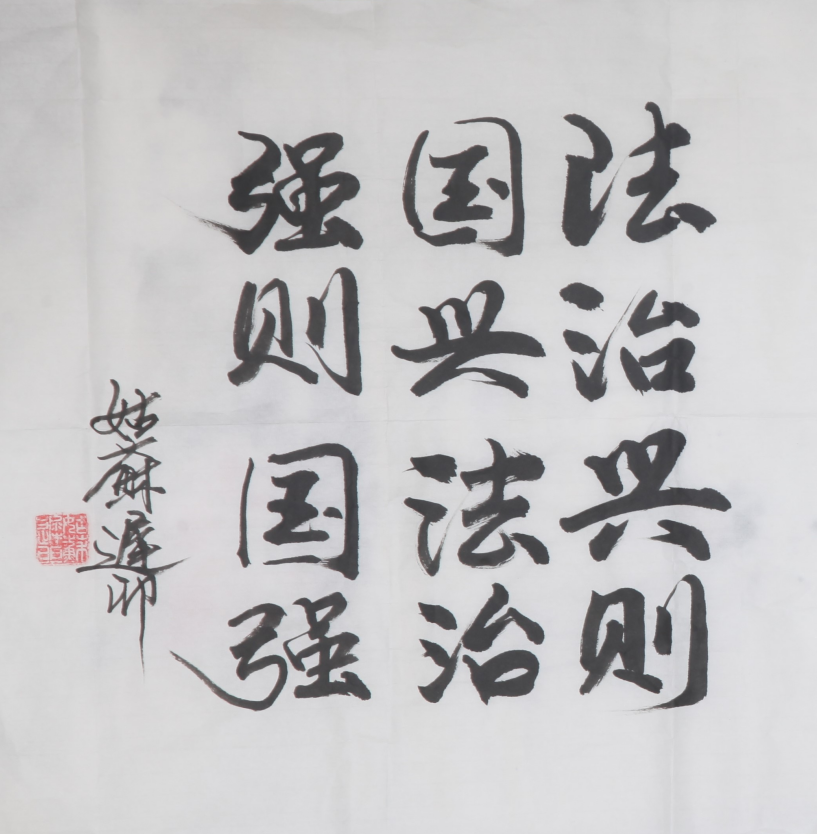 法治兴则
国兴法治
强则国强
姑苏遲卯